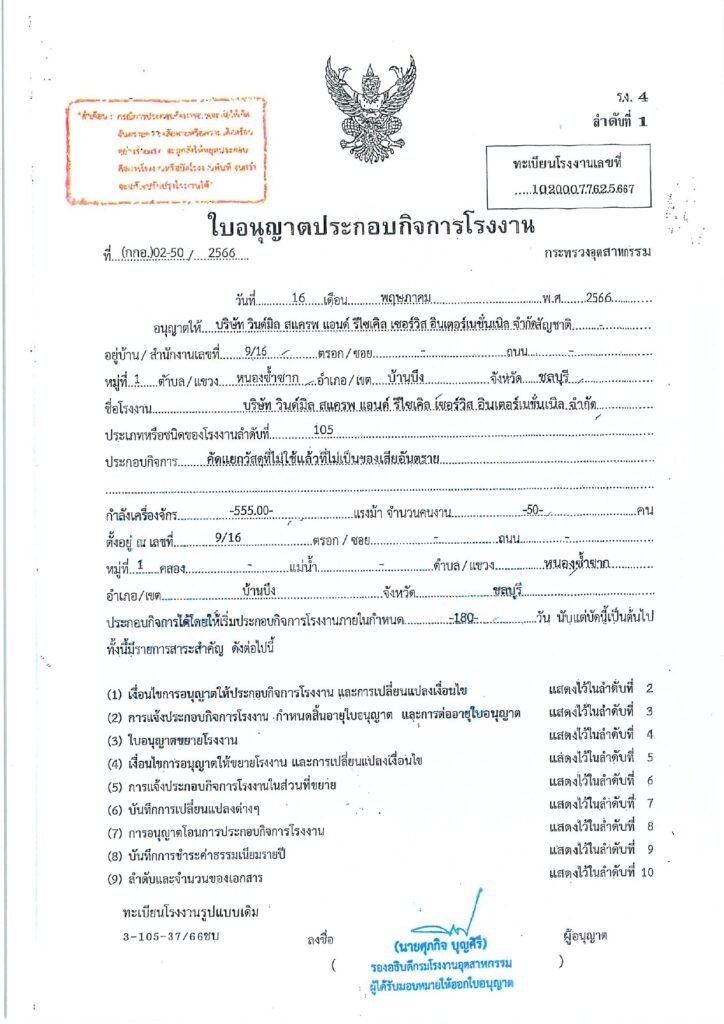 ร.ง. 4
ลำดับที่ 1
"คำเตือน :
ทะเบียนโรงงานเลขที่
.....10200077625667
ใบอนุญาตประกอบกิจการโรงงาน
ที่ (กกอ.)02-50 / 2566
กระทรวงอุตสาหกรรม
วันที่ 16 เดือน พฤษภาคม พ.ศ. 2566
อนุญาตให้ บริษัท วินด์มิล สแครพ แอนด์ รีไซเคิล เซอร์วิส อินเตอร์เนชั่นเนิล จำกัด สัญชาติ -
อยู่บ้าน / สำนักงานเลขที่ 9/16 ตรอก / ซอย - ถนน -
หมู่ที่ 1 ตำบล / แขวง หนองซ้ำซาก อำเภอ / เขต บ้านบึง จังหวัด ชลบุรี
ชื่อโรงงาน บริษัท วินด์มิล สแครพ แอนด์ รีไซเคิล เซอร์วิส อินเตอร์เนชั่นเนิล จำกัด
ประเภทหรือชนิดของโรงงานลำดับที่ 105
ประกอบกิจการ คัดแยกวัสดุที่ไม่ใช้แล้วที่ไม่เป็นของเสียอันตราย
กำลังเครื่องจักร -555.00- แรงม้า จำนวนคนงาน -50- คน
ตั้งอยู่ ณ เลขที่ 9/16 ตรอก / ซอย - ถนน -
หมู่ที่ 1 คลอง - แม่น้ำ - ตำบล / แขวง หนองซ้ำซาก
อำเภอ/เขต บ้านบึง จังหวัด ชลบุรี
ประกอบกิจการได้โดยให้เริ่มประกอบกิจการโรงงานภายในกำหนด -180- วัน นับแต่บัดนี้เป็นต้นไป
ทั้งนี้มีรายการสาระสำคัญ ดังต่อไปนี้
(1) เงื่อนไขการอนุญาตให้ประกอบกิจการโรงงาน และการเปลี่ยนแปลงเงื่อนไข แสดงไว้ในลำดับที่ 2
(2) การแจ้งประกอบกิจการโรงงาน กำหนดสิ้นอายุใบอนุญาต และการต่ออายุใบอนุญาต แสดงไว้ในลำดับที่ 3
(3) ใบอนุญาตขยายโรงงาน แสดงไว้ในลำดับที่ 4
(4) เงื่อนไขการอนุญาตให้ขยายโรงงาน และการเปลี่ยนแปลงเงื่อนไข แสดงไว้ในลำดับที่ 5
(5) การแจ้งประกอบกิจการโรงงานในส่วนที่ขยาย แสดงไว้ในลำดับที่ 6
(6) บันทึกการเปลี่ยนแปลงต่างๆ แสดงไว้ในลำดับที่ 7
(7) การอนุญาตโอนการประกอบกิจการโรงงาน แสดงไว้ในลำดับที่ 8
(8) บันทึกการชำระค่าธรรมเนียมรายปี แสดงไว้ในลำดับที่ 9
(9) ลำดับและจำนวนของเอกสาร แสดงไว้ในลำดับที่ 10
ทะเบียนโรงงานรูปแบบเดิม
3-105-37/66ชบ
ลงชื่อ ผู้อนุญาต
(นายศุภกิจ บุญศิริ)
( รองอธิบดีกรมโรงงานอุตสาหกรรม )
ผู้ได้รับมอบหมายให้ออกใบอนุญาต